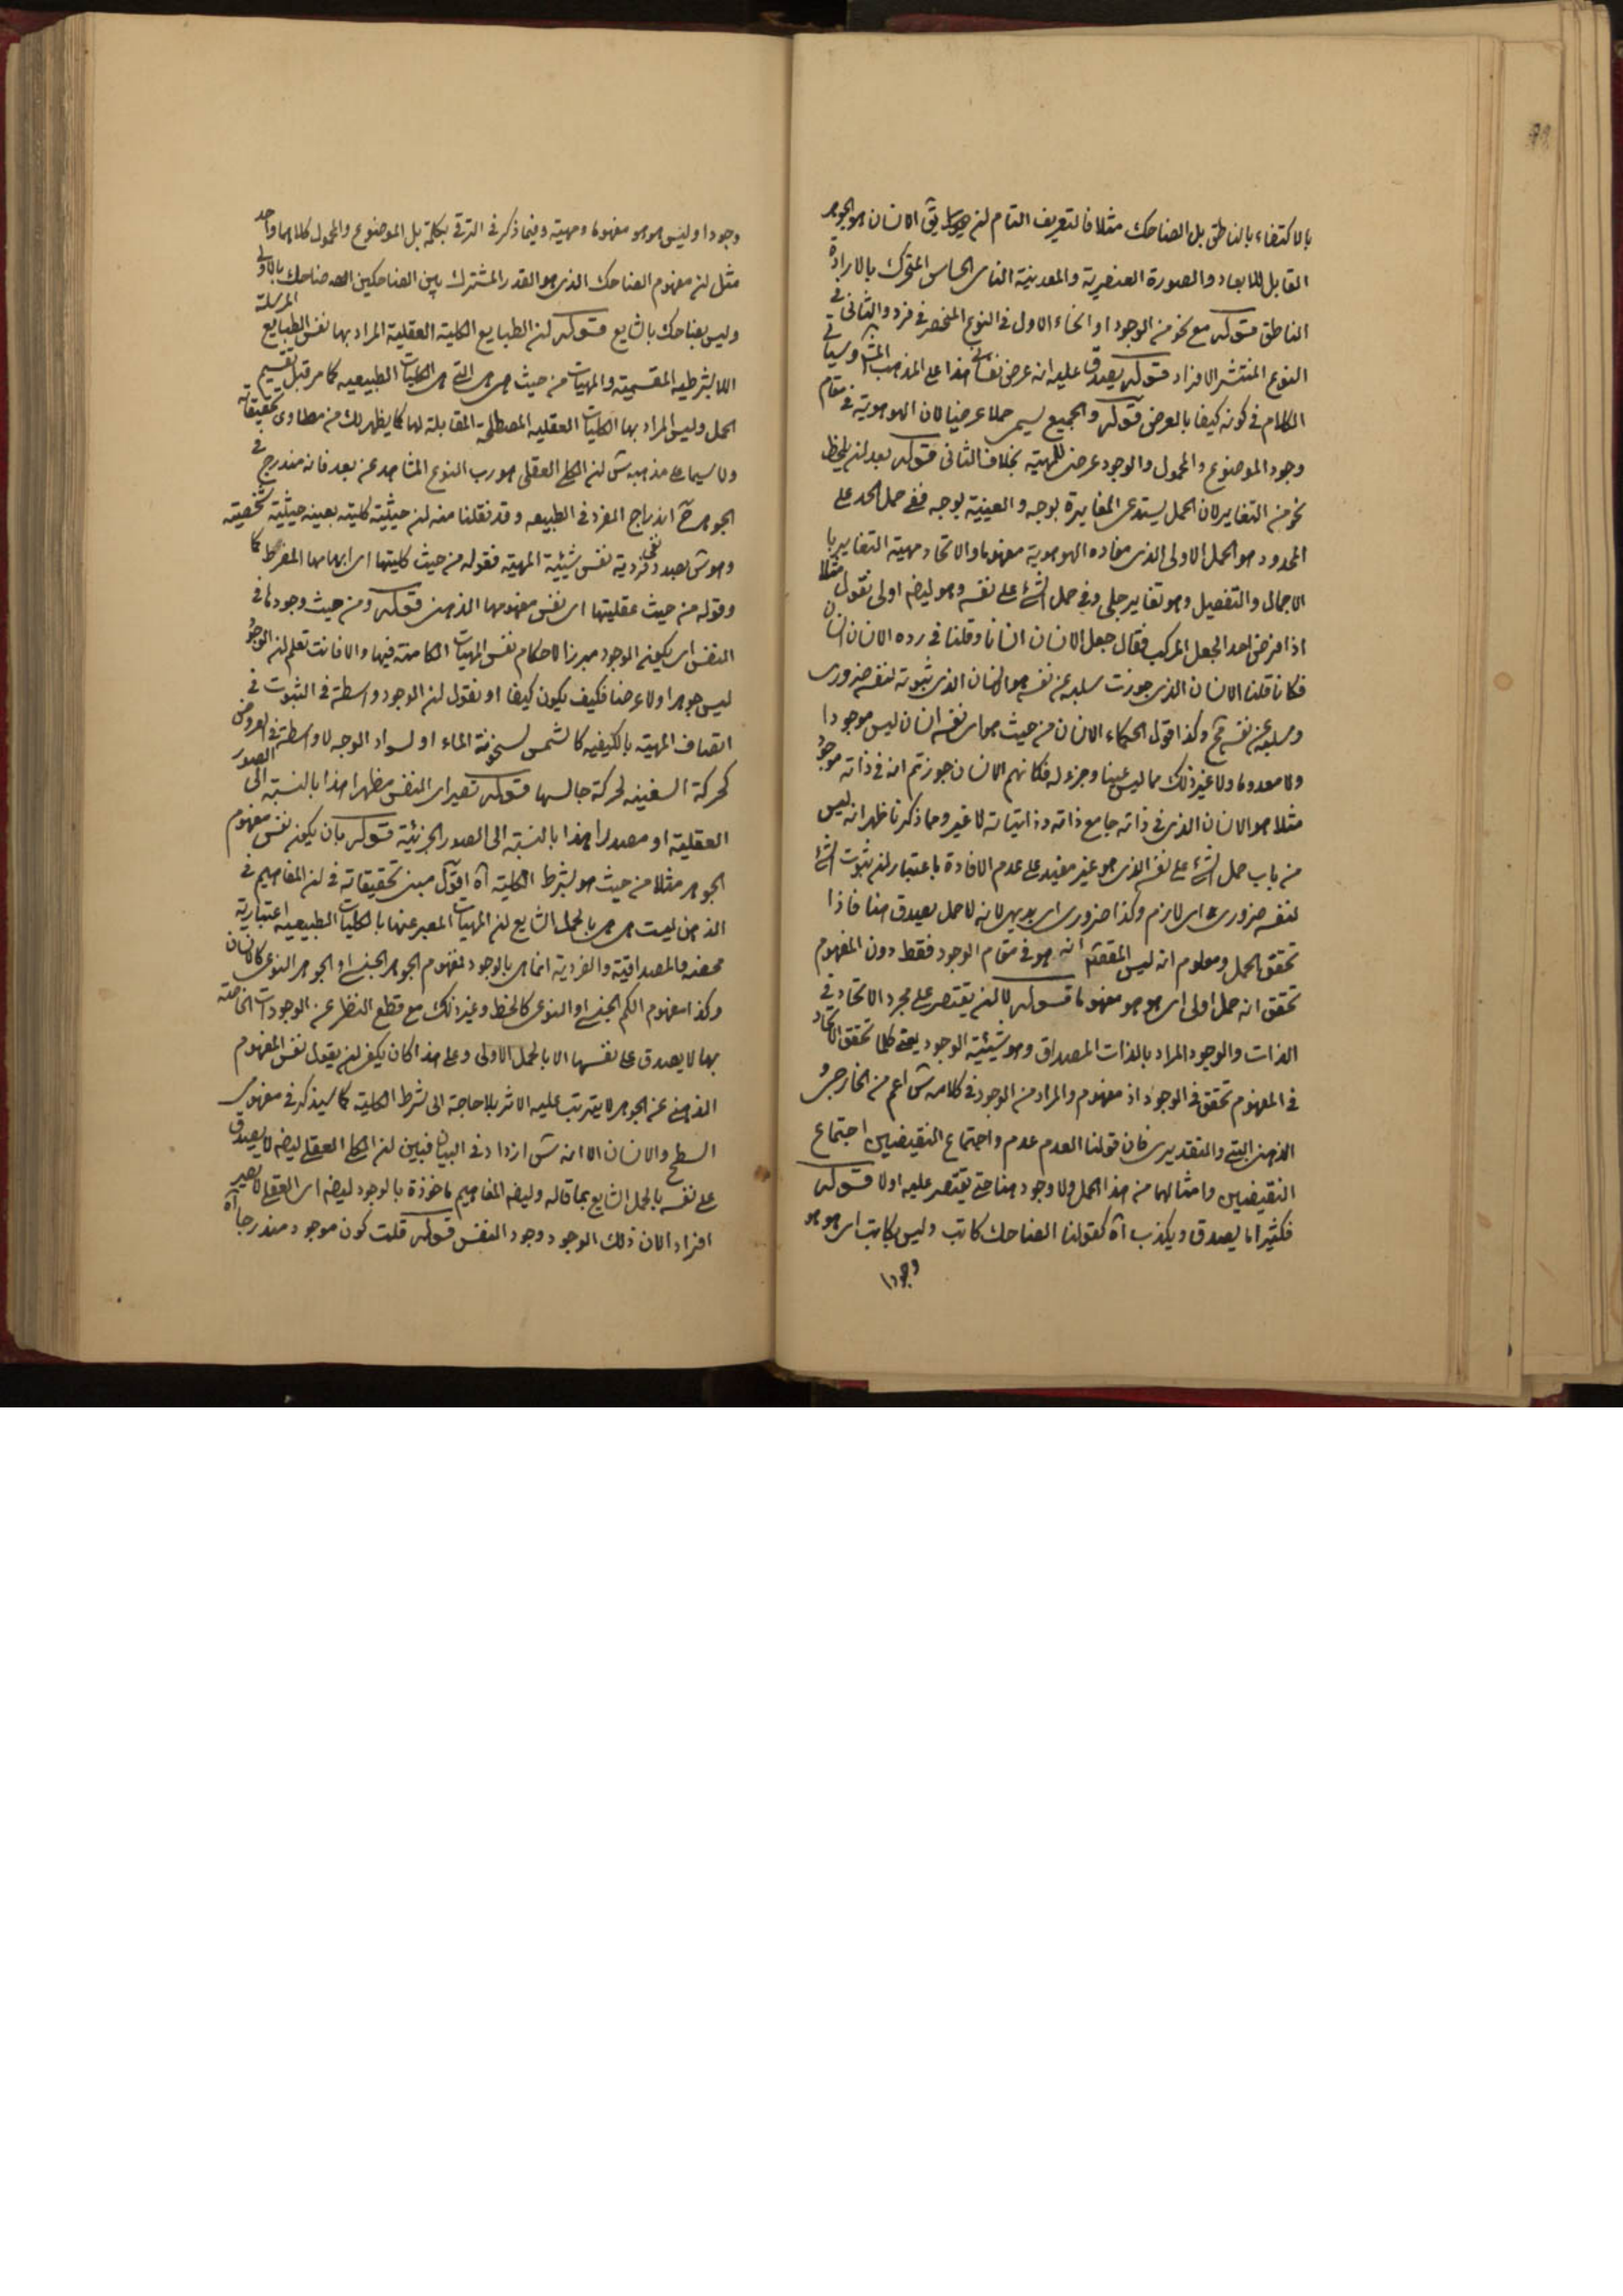 بالاكتفاء بالناطق بل الضاحك مثلا فالتعريف التام ان يق الانسان هو الجوهر
القابل للابعاد والصورة العنصرية والمعدنية النامى الحساس المتحرك بالارادة
الناطق قوله مع نحو من الوجود او انحاء الاول فى النوع المنحصر فى فرد والثانى فى
النوع المنتشر الافراد قوله يصدق عليه انه عرض نفسانى هذا على المذهب وسياتى
الكلام فى كونه كيفا بالعرض قوله والجميع يسمى حملا عرضيا لان الهوهوية فى مقام
وجود الموضوع والمحمول والوجود عرض للمهية بخلاف الثانى قوله بعد ان يلحظ
نحو من التغاير لان الحمل يستدعى المغايرة بوجه والعينية بوجه ففى حمل الحد على
المحدود هو الحمل الاولى الذى مفاده الهوهوية مفهوما والاتحاد مهية التغاير با
لاجمال والتفصيل وهو تغاير جلى وفى حمل الشئ على نفسه وهو ايضا اولى نقول مثلا
اذا فرض احد الجعل المركب فقال جعل الانسان انسانا وقلنا فى رده الانسان انسان
فكانا قلنا الانسان الذى جوزت سلبه عن نفسه هو الانسان الذى ثبوته لنفسه ضرورى
وسلبه عن نفسه مح وكذا قول الحكماء الانسان من حيث هو اى نفسه انسان ليس موجودا
ولا معدوما ولا غير ذلك مما ليس عينا وجزء له فكانهم الانسان جوزتم انه فى ذاته موجود
مثلا هو الانسان الذى فى ذاته جامع ذاته وذاتياته لا غير ومما ذكرنا ظهر انه ليس
من باب حمل الشئ على نفسه الذى هو غير مفيد على عدم الافادة باعتبار ان ثبوت الشئ
لنفسه ضرورى اى لازم وكذا ضرورى اى بديهى لانه لا حمل يصدق هنا فاذا
تحقق الحمل ومعلوم انه ليس المقصود انه هو فى مقام الوجود فقط دون المفهوم
تحقق انه حمل اولى اى هو هو مفهوما قوله لا ان يقتصر على مجرد الاتحاد فى
الذات والوجود المراد بالذات المصداق وهو شيئية الوجود يعنى كلما تحقق الاتحاد
فى المفهوم تحقق فى الوجود اذ مفهوم والمراد من الوجود فى كلامه ش اعم من الخارجى و
الذهنى البتى والتقديرى فان قولنا العدم عدم واجتماع النقيضين اجتماع
النقيضين وامثالهما من هذا الحمل ولا وجود هنا حتى يقتصر عليه اولا قوله
فكثيرا ما يصدق ويكذب آه كقولنا الضاحك كاتب وليس بكاتب اى هو هو
وجودا
وجودا وليس هو هو مفهوما ومهية وفيما ذكر فى الترقى بكلمة بل الموضوع والمحمول كلاهما واحد
مثل ان مفهوم الضاحك الذى هو القدر المشترك بين الضاحكين ضاحك بالاولى
وليس بضاحك بالشايع قوله ان الطبايع الكلية العقلية المراد بها نفس الطبايع المرسلة
اللابشرطيه المقسمية والمهيات من حيث هى هى التى هى الكليات الطبيعيه كما مر قبل تقسيم
الحمل وليس المراد بها الكليات العقليه المصطلحة المقابلة لها كما يظهر لك من مطاوى تحقيقاته
ولا سيما على مذهبه ش ان الكلى العقلى هو رب النوع المشاهد عن بعد فانه مندرج فى
الجوهر ح اندراج الفرد فى الطبيعه وقد نقلنا منه ان حيثية كليته بعينه حيثية شخصيته
وهو ش بصدد نفى فردية نفس شيئية المهية فقوله من حيث كليتها اى ابهامها المفرط كما
وقوله من حيث عقليتها اى نفس مفهومها الذهنى قوله ومن حيث وجودها فى
النفس اى يكون الوجود مبرزا لاحكام نفس المهيات الكامنة فيها والا فانت تعلم ان الوجود
ليس جوهرا ولا عرضا فكيف يكون كيفا او نقول ان الوجود واسطة فى الثبوت فى
اتصاف المهية بالكيفيه كالشمس لسخونة الماء او لسواد الوجه لا واسطة فى العروض
كحركة السفينه لحركة جالسها قوله تصير اى النفس مظهرا هذا بالنسبة الى الصور
العقلية او مصدرا هذا بالنسبة الى الصور الجزئية قوله بان يكون نفس مفهوم
الجوهر مثلا من حيث هو بشرط الكلية آه اقول مبنى تحقيقاته فى ان المفاهيم فى
الذهن ليست هى هى بالحمل الشايع ان المهيات المعبر عنها بالكليات الطبيعيه اعتبارية
محضه والمصداقية والفردية انما هى بالوجود لمفهوم الجوهر الجنسى او الجوهر النوعى كالانسان
وكذا مفهوم الكم الجنسى او النوعى كالخط وغير ذلك مع قطع النظر عن الوجودات الخاصة
بها لا يصدق على نفسها الا بالحمل الاولى وعلى هذا كان يكفى ان يقول نفس المفهوم
الذهنى عن الجوهر لا يترتب عليه الاثر بلا حاجة الى شرط الكلية كما سيذكر فى مفهومى
السطح والانسان الا انه ش ازداد فى البيان فبين ان الكلى العقلى ايضا لا يصدق
على نفسه بالحمل الشايع بما قاله وايضا المفاهيم ماخوذة بالوجود ايضا اى العقلى لا تصير
افراد الان ذلك الوجود وجود النفس قوله قلت كون موجود مندرجا آه